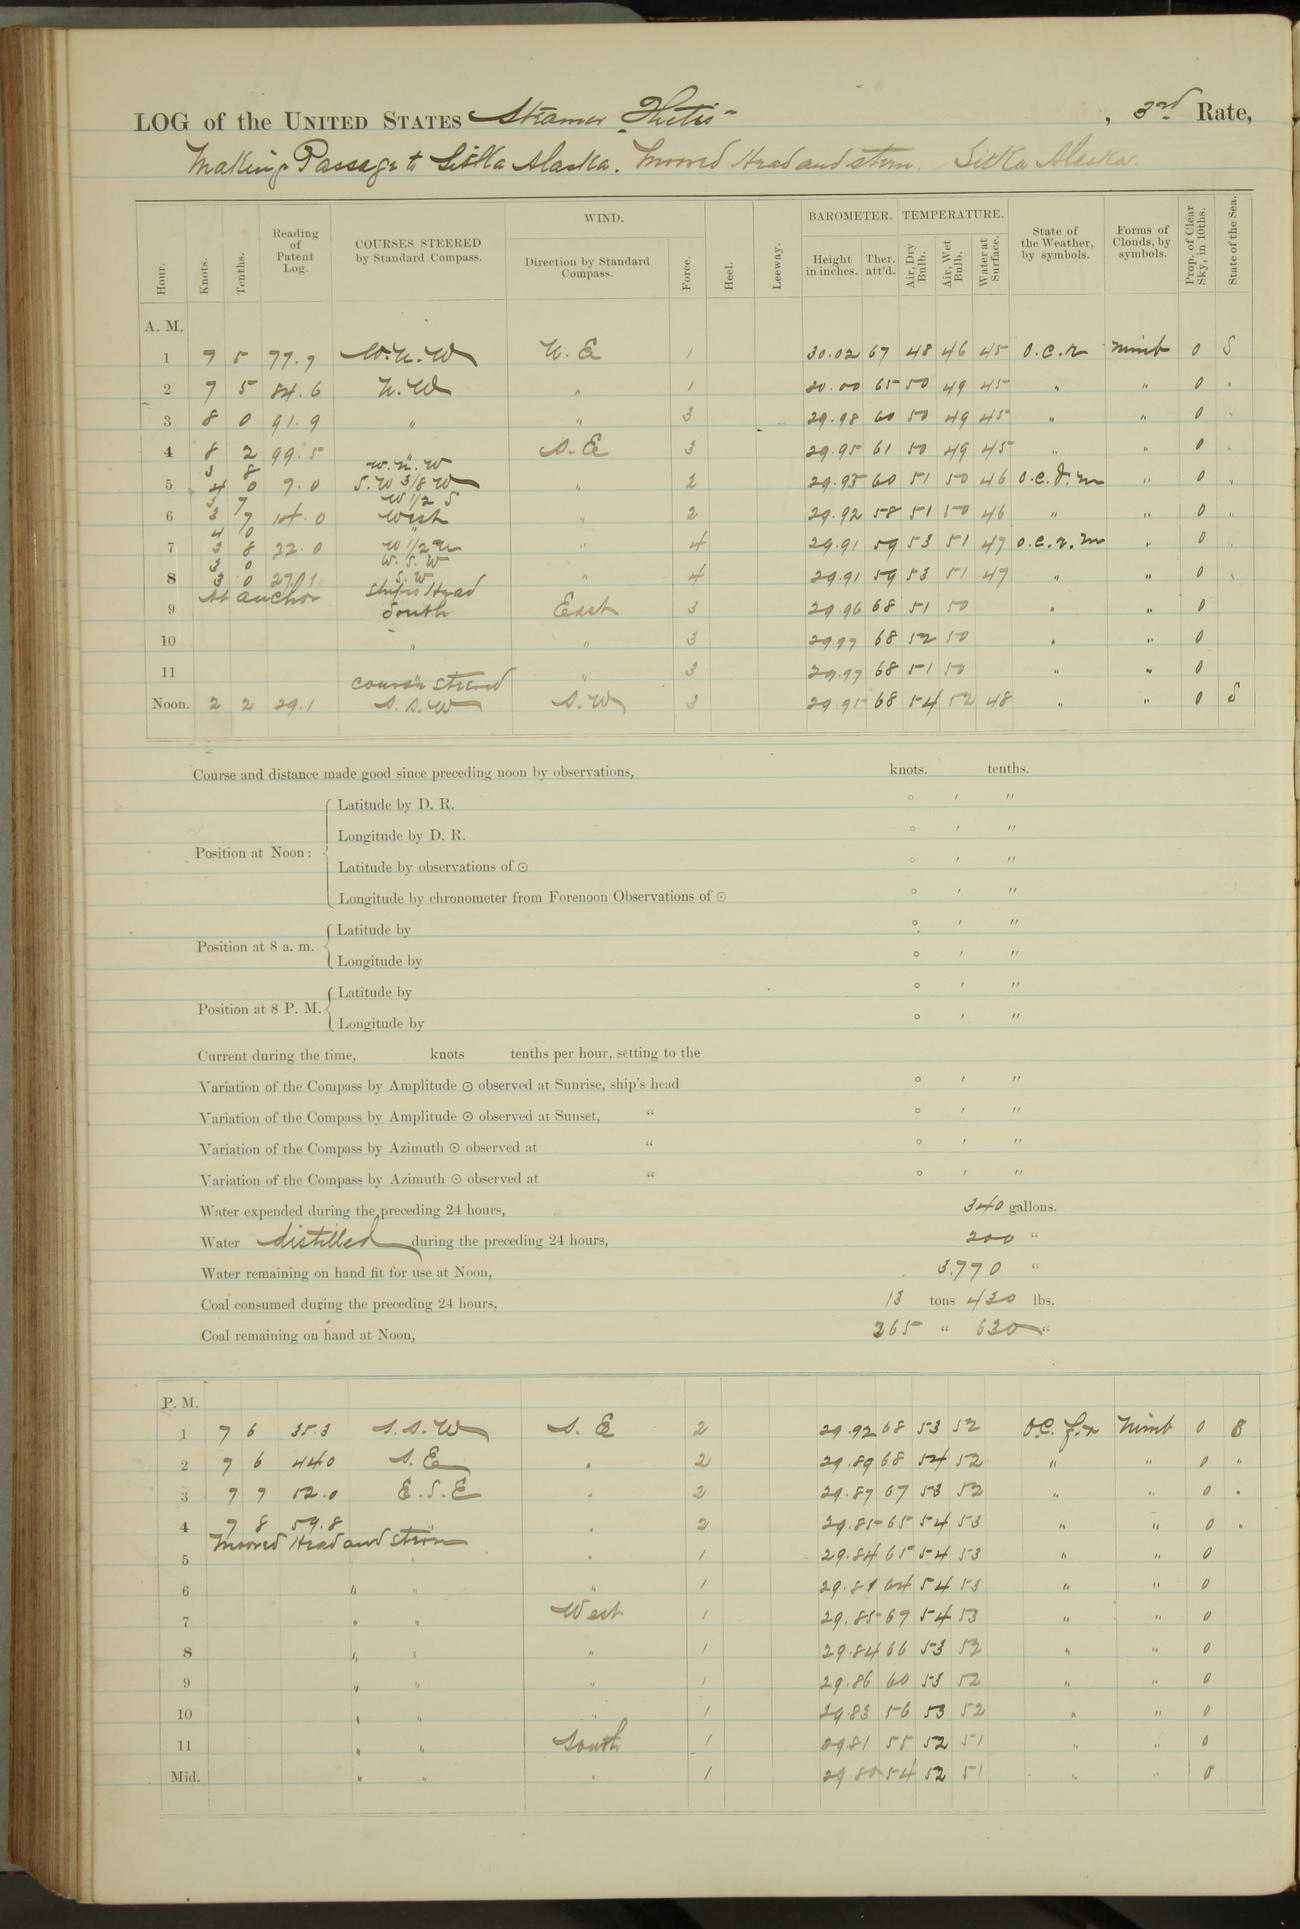 LOG of the UNITED STATES Steamer "Thetis" , 3rd Rate,
Making Passage to Sitka Alaska. Moored Head and stern. Sitka Alaska.
Hour. Knots. Tenths. Reading of Patent Log. COURSES STEERED by Standard Compass. WIND. Direction by Standard Compass. Force. Heel. Leeway. BAROMETER. Height in inches. Ther. att'd. TEMPERATURE. Air, Dry Bulb. Air, Wet Bulb. Water at Surface. State of the Weather, by symbols. Forms of Clouds, by symbols. Prop. of Clear Sky, in 10ths. State of the Sea.
A. M.
1 7 5 77.7 W.N.W N.E 1 30.02 67 48 46 45 o.c.r Nimb 0 S
2 7 5 84.6 N.W " 1 30.00 65 50 49 45 " " 0 "
3 8 0 91.9 " " 3 29.98 60 50 49 45 " " 0 "
4 8 2 99.5 " S.E 3 29.95 61 50 49 45 " " 0 "
3 8 W.N.W
5 4 0 7.0 S.W 3/8 W " 2 29.95 60 51 50 46 o.c.d.m " 0 "
3 7 W 1/2 S
6 3 7 14.0 West " 2 29.92 58 51 50 46 " " 0 "
4 0 "
7 3 8 22.0 W 1/2 N " 4 29.91 59 53 51 47 o.c.r.m " 0 "
3 0 W.S.W
8 3 0 27.01 S.W " 4 29.91 59 53 51 47 " " 0 "
At anchor Ships Head
9 South East 3 29.96 68 51 50 " " 0
10 " " 3 29.97 68 52 50 " " 0
11 " " 3 29.97 68 51 50 " " 0
course steered
Noon. 2 2 29.1 S.S.W S.W 3 29.95 68 54 52 48 " " 0 S
Course and distance made good since preceding noon by observations, knots. tenths.
Position at Noon: Latitude by D. R. ° ′ ″
Longitude by D. R. ° ′ ″
Latitude by observations of ⊙ ° ′ ″
Longitude by chronometer from Forenoon Observations of ⊙ ° ′ ″
Position at 8 a. m. Latitude by ° ′ ″
Longitude by ° ′ ″
Position at 8 P. M. Latitude by ° ′ ″
Longitude by ° ′ ″
Current during the time, knots tenths per hour, setting to the
Variation of the Compass by Amplitude ⊙ observed at Sunrise, ship's head ° ′ ″
Variation of the Compass by Amplitude ⊙ observed at Sunset, " ° ′ ″
Variation of the Compass by Azimuth ⊙ observed at " ° ′ ″
Variation of the Compass by Azimuth ⊙ observed at " ° ′ ″
Water expended during the preceding 24 hours, 340 gallons.
Water distilled during the preceding 24 hours, 200 "
Water remaining on hand fit for use at Noon, 3,770 "
Coal consumed during the preceding 24 hours, 13 tons 430 lbs.
Coal remaining on hand at Noon, 265 " 630 "
P. M.
1 7 6 35.3 S.S.W S.E 2 29.92 68 53 52 o.c.f.r Nimb 0 S
2 7 6 44.0 S.E " 2 29.89 68 54 52 " " 0 "
3 7 7 52.0 E.S.E " 2 29.87 67 53 52 " " 0 "
4 7 8 59.8 " " 2 29.85 65 54 53 " " 0 "
Moored Head and Stern
5 " 1 29.84 65 54 53 " " 0
6 " " " 1 29.81 64 54 53 " " 0
7 " " West 1 29.85 67 54 53 " " 0
8 " " " 1 29.84 66 53 52 " " 0
9 " " " 1 29.86 60 53 52 " " 0
10 " " " 1 29.83 56 53 52 " " 0
11 " " South 1 29.81 55 52 51 " " 0
Mid. " " " 1 29.80 54 52 51 " " 0